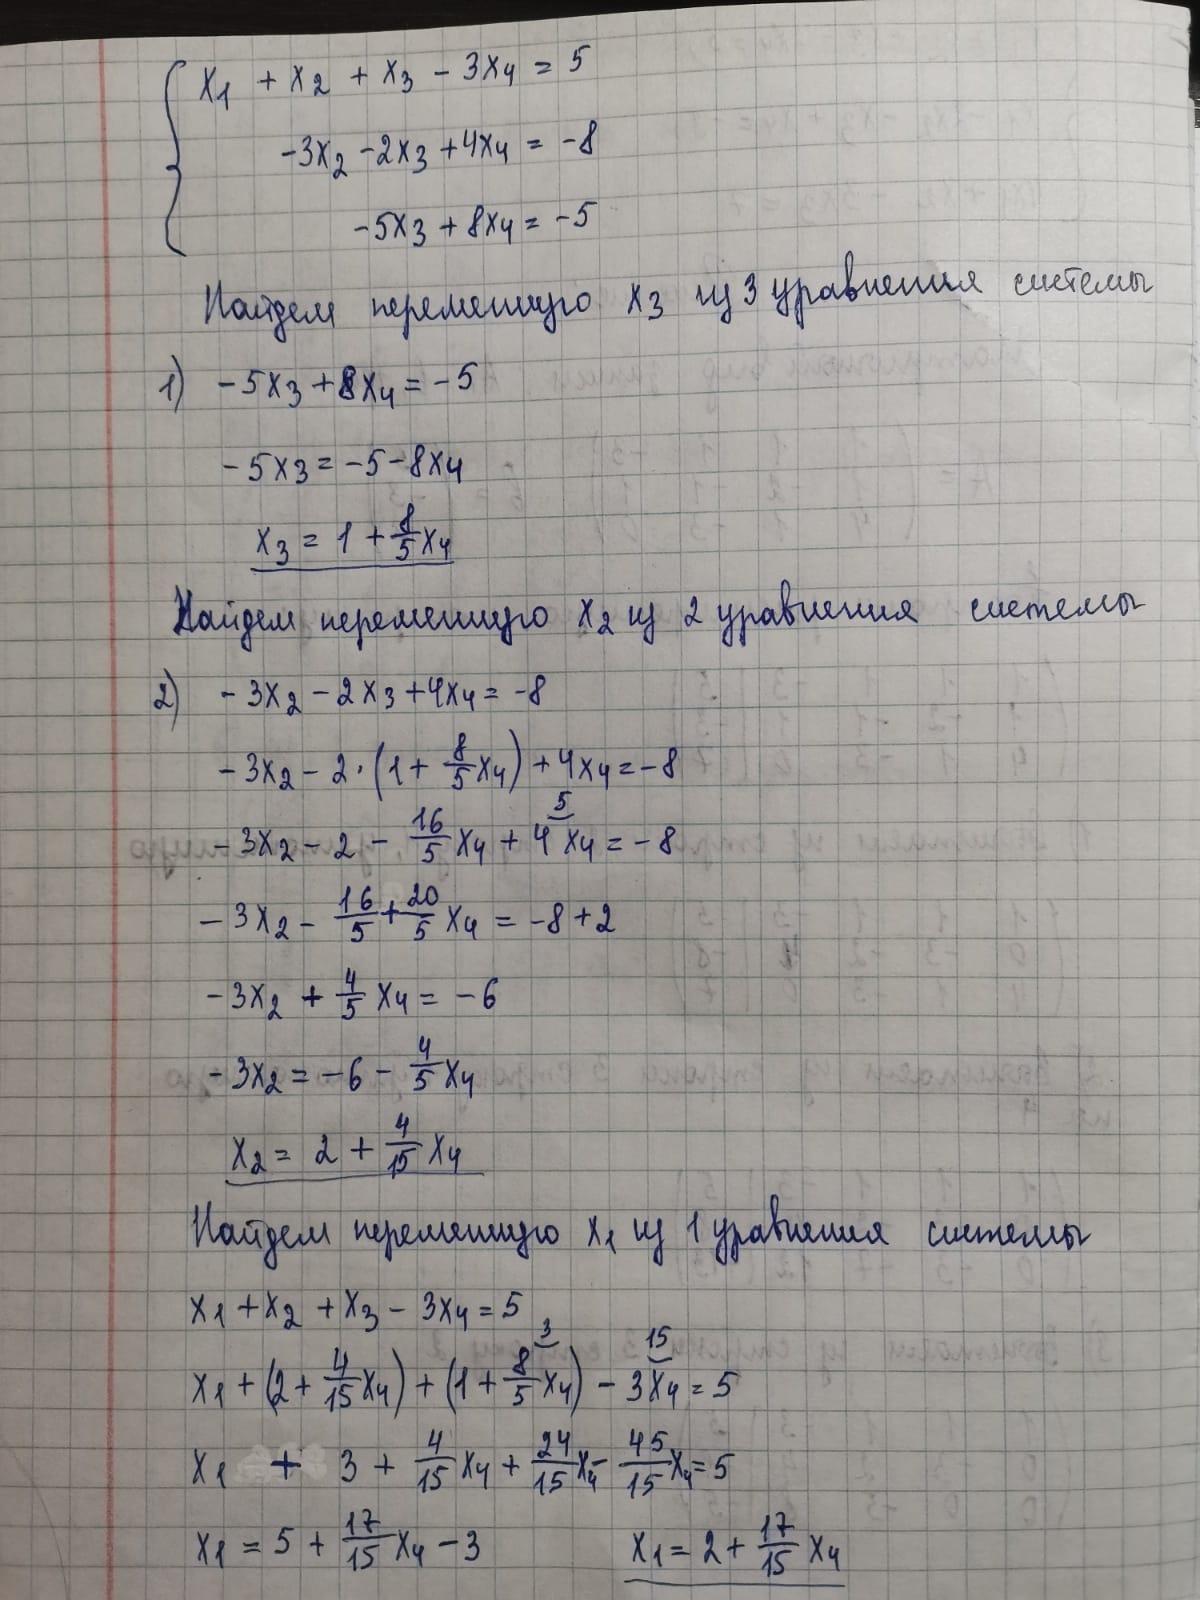 x₁ + x₂ + x₃ - 3x₄ = 5
-3x₂ - 2x₃ + 4x₄ = -8
-5x₃ + 8x₄ = -5
Найдем переменную x₃ из 3 уравнения системы
1) -5x₃ + 8x₄ = -5
-5x₃ = -5 - 8x₄
x₃ = 1 + 8/5 x₄
Найдем переменную x₂ из 2 уравнения системы
2) -3x₂ - 2x₃ + 4x₄ = -8
-3x₂ - 2·(1 + 8/5 x₄) + 4x₄ = -8
5
-3x₂ - 2 - 16/5 x₄ + 4x₄ = -8
-3x₂ - 16/5 + 20/5 x₄ = -8 + 2
-3x₂ + 4/5 x₄ = -6
-3x₂ = -6 - 4/5 x₄
x₂ = 2 + 4/15 x₄
Найдем переменную x₁ из 1 уравнения системы
x₁ + x₂ + x₃ - 3x₄ = 5
3 15
x₁ + (2 + 4/15 x₄) + (1 + 8/5 x₄) - 3x₄ = 5
x₁ + 3 + 4/15 x₄ + 24/15 x₄ - 45/15 x₄ = 5
x₁ = 5 + 17/15 x₄ - 3 x₁ = 2 + 17/15 x₄